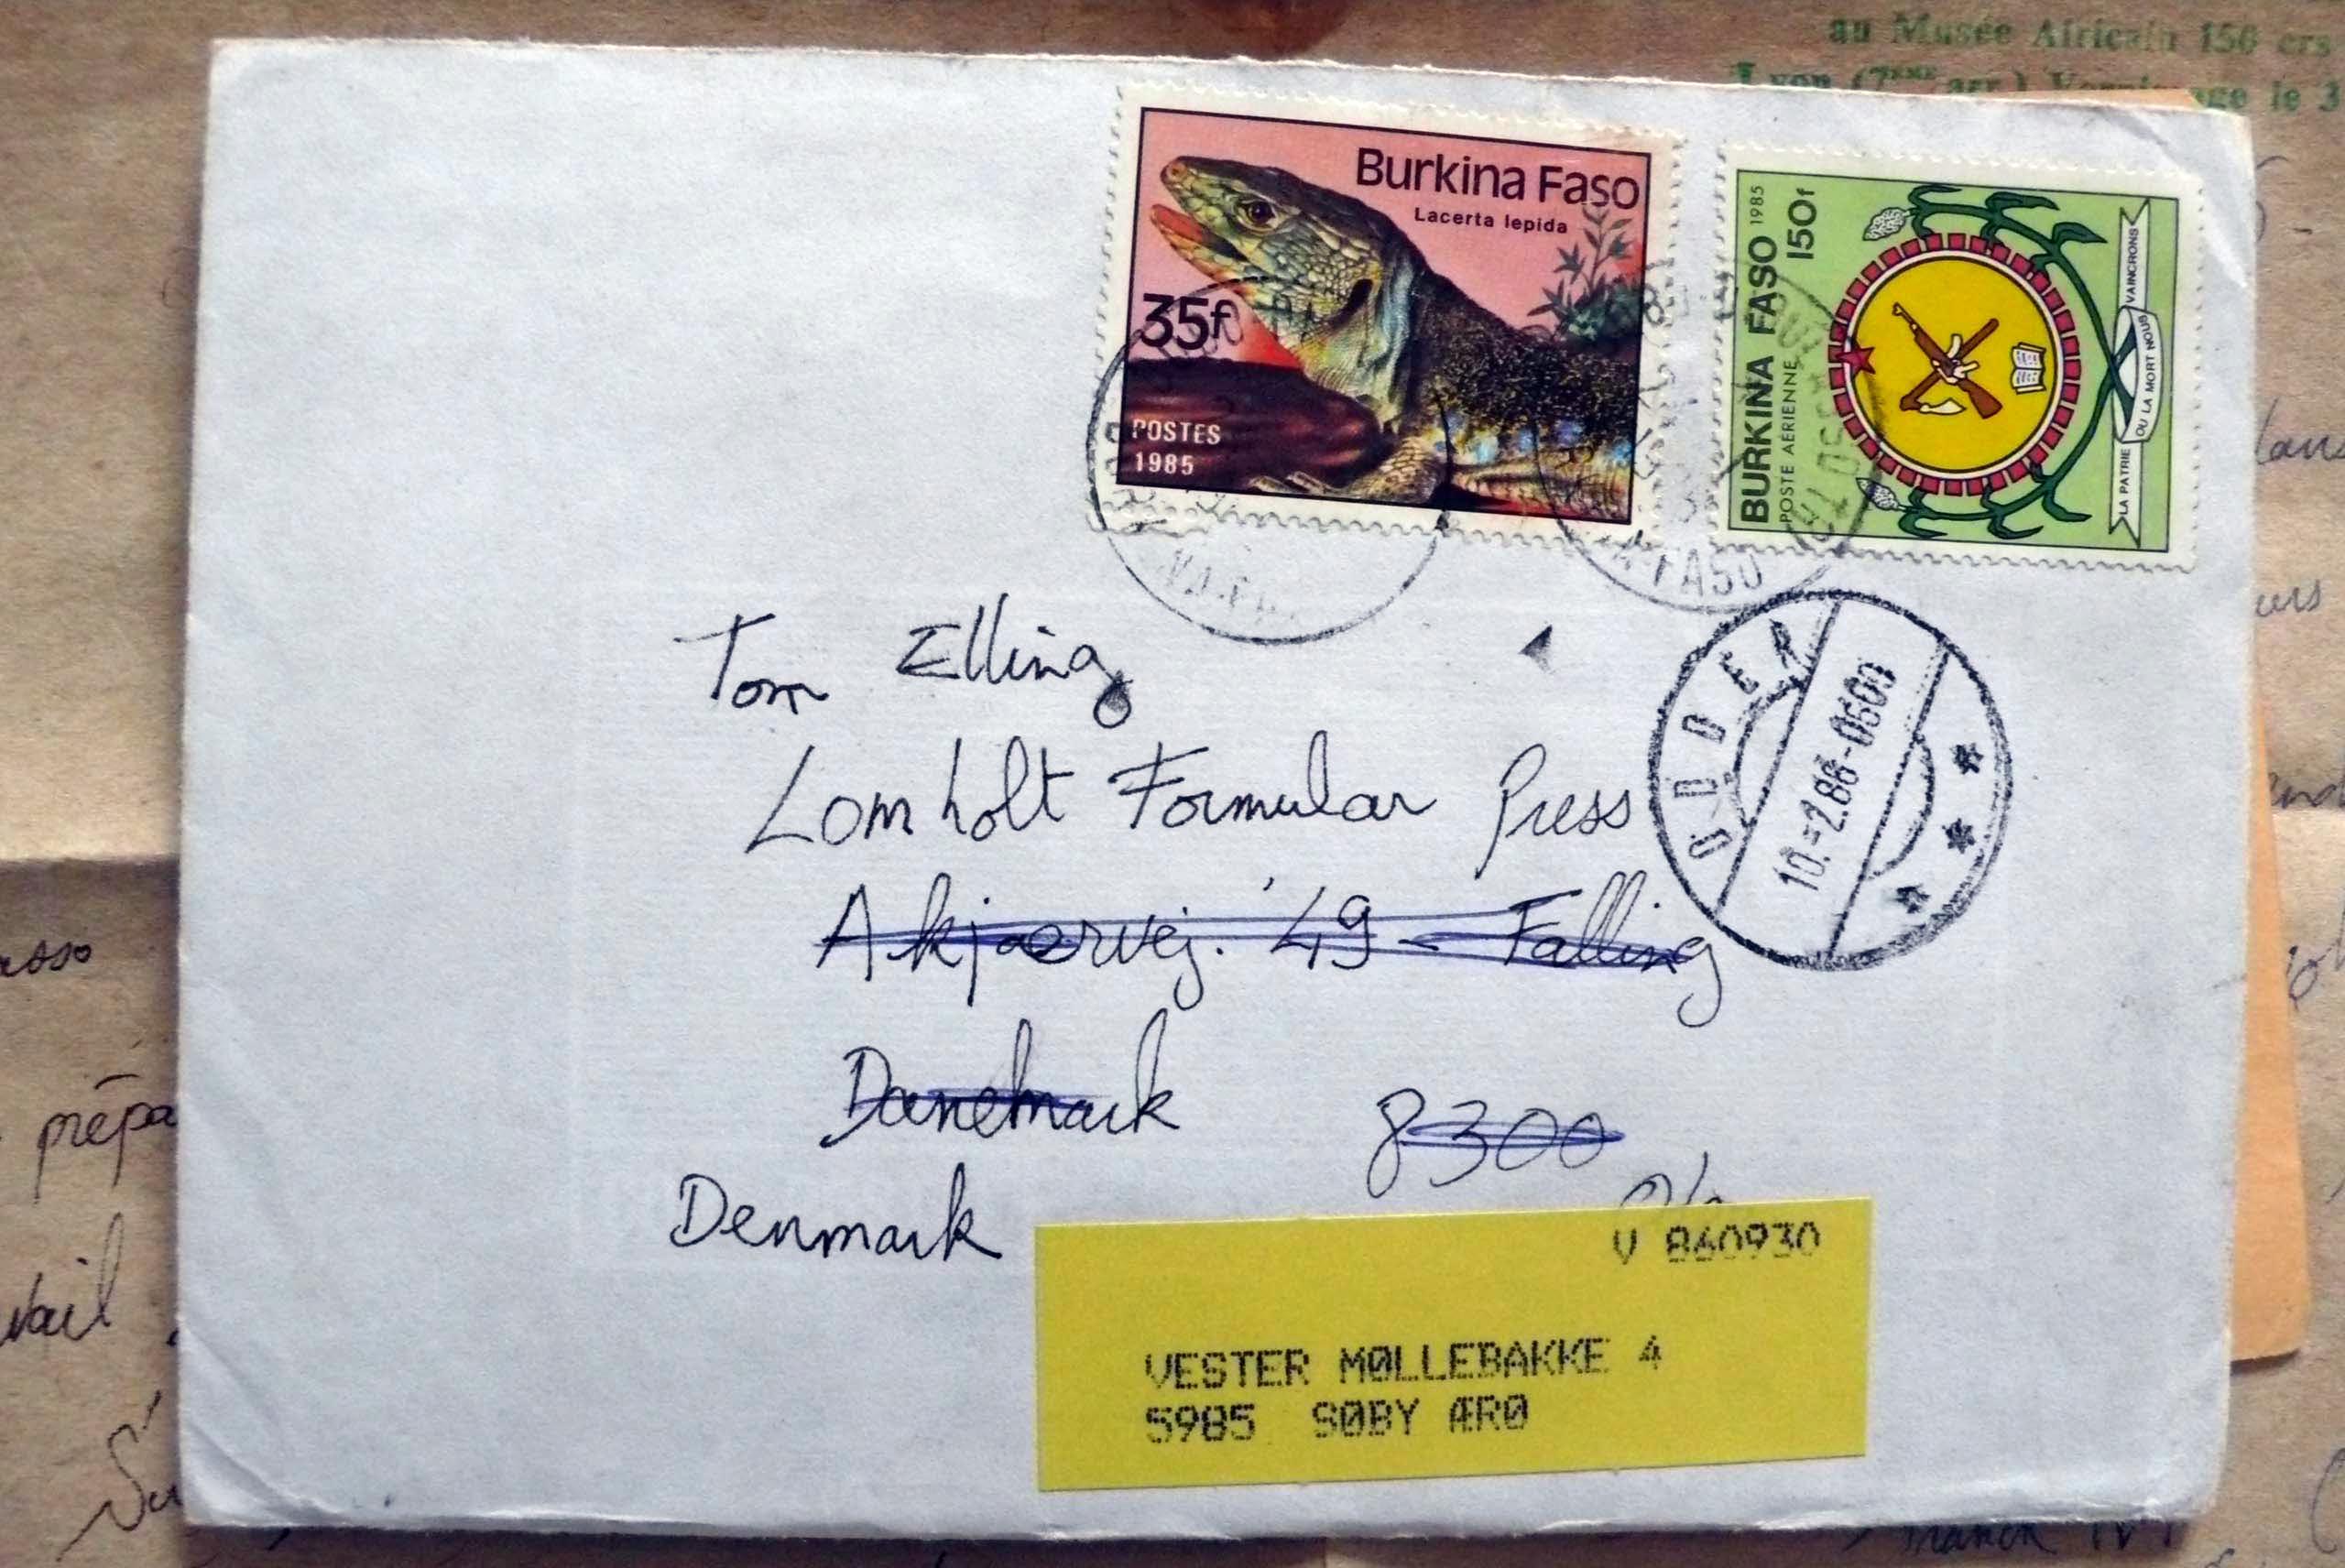 au Musée Africain 150 crs
Lyon (7EME arr.)
age le 3
Burkina Faso
Lacerta lepida
35f
POSTES
1985
BURKINA FASO 1985
POSTE AÉRIENNE 150f
LA PATRIE OU LA MORT NOUS VAINCRONS
FASO
ODDER
10.-2.86-0600
Tom Elling
Lomholt Formular Press
Akjaervej. 49 - Falling
Danemark 8300
Denmark
V 860930
VESTER MØLLEBAKKE 4
5985 SØBY ÆRØ
prépa